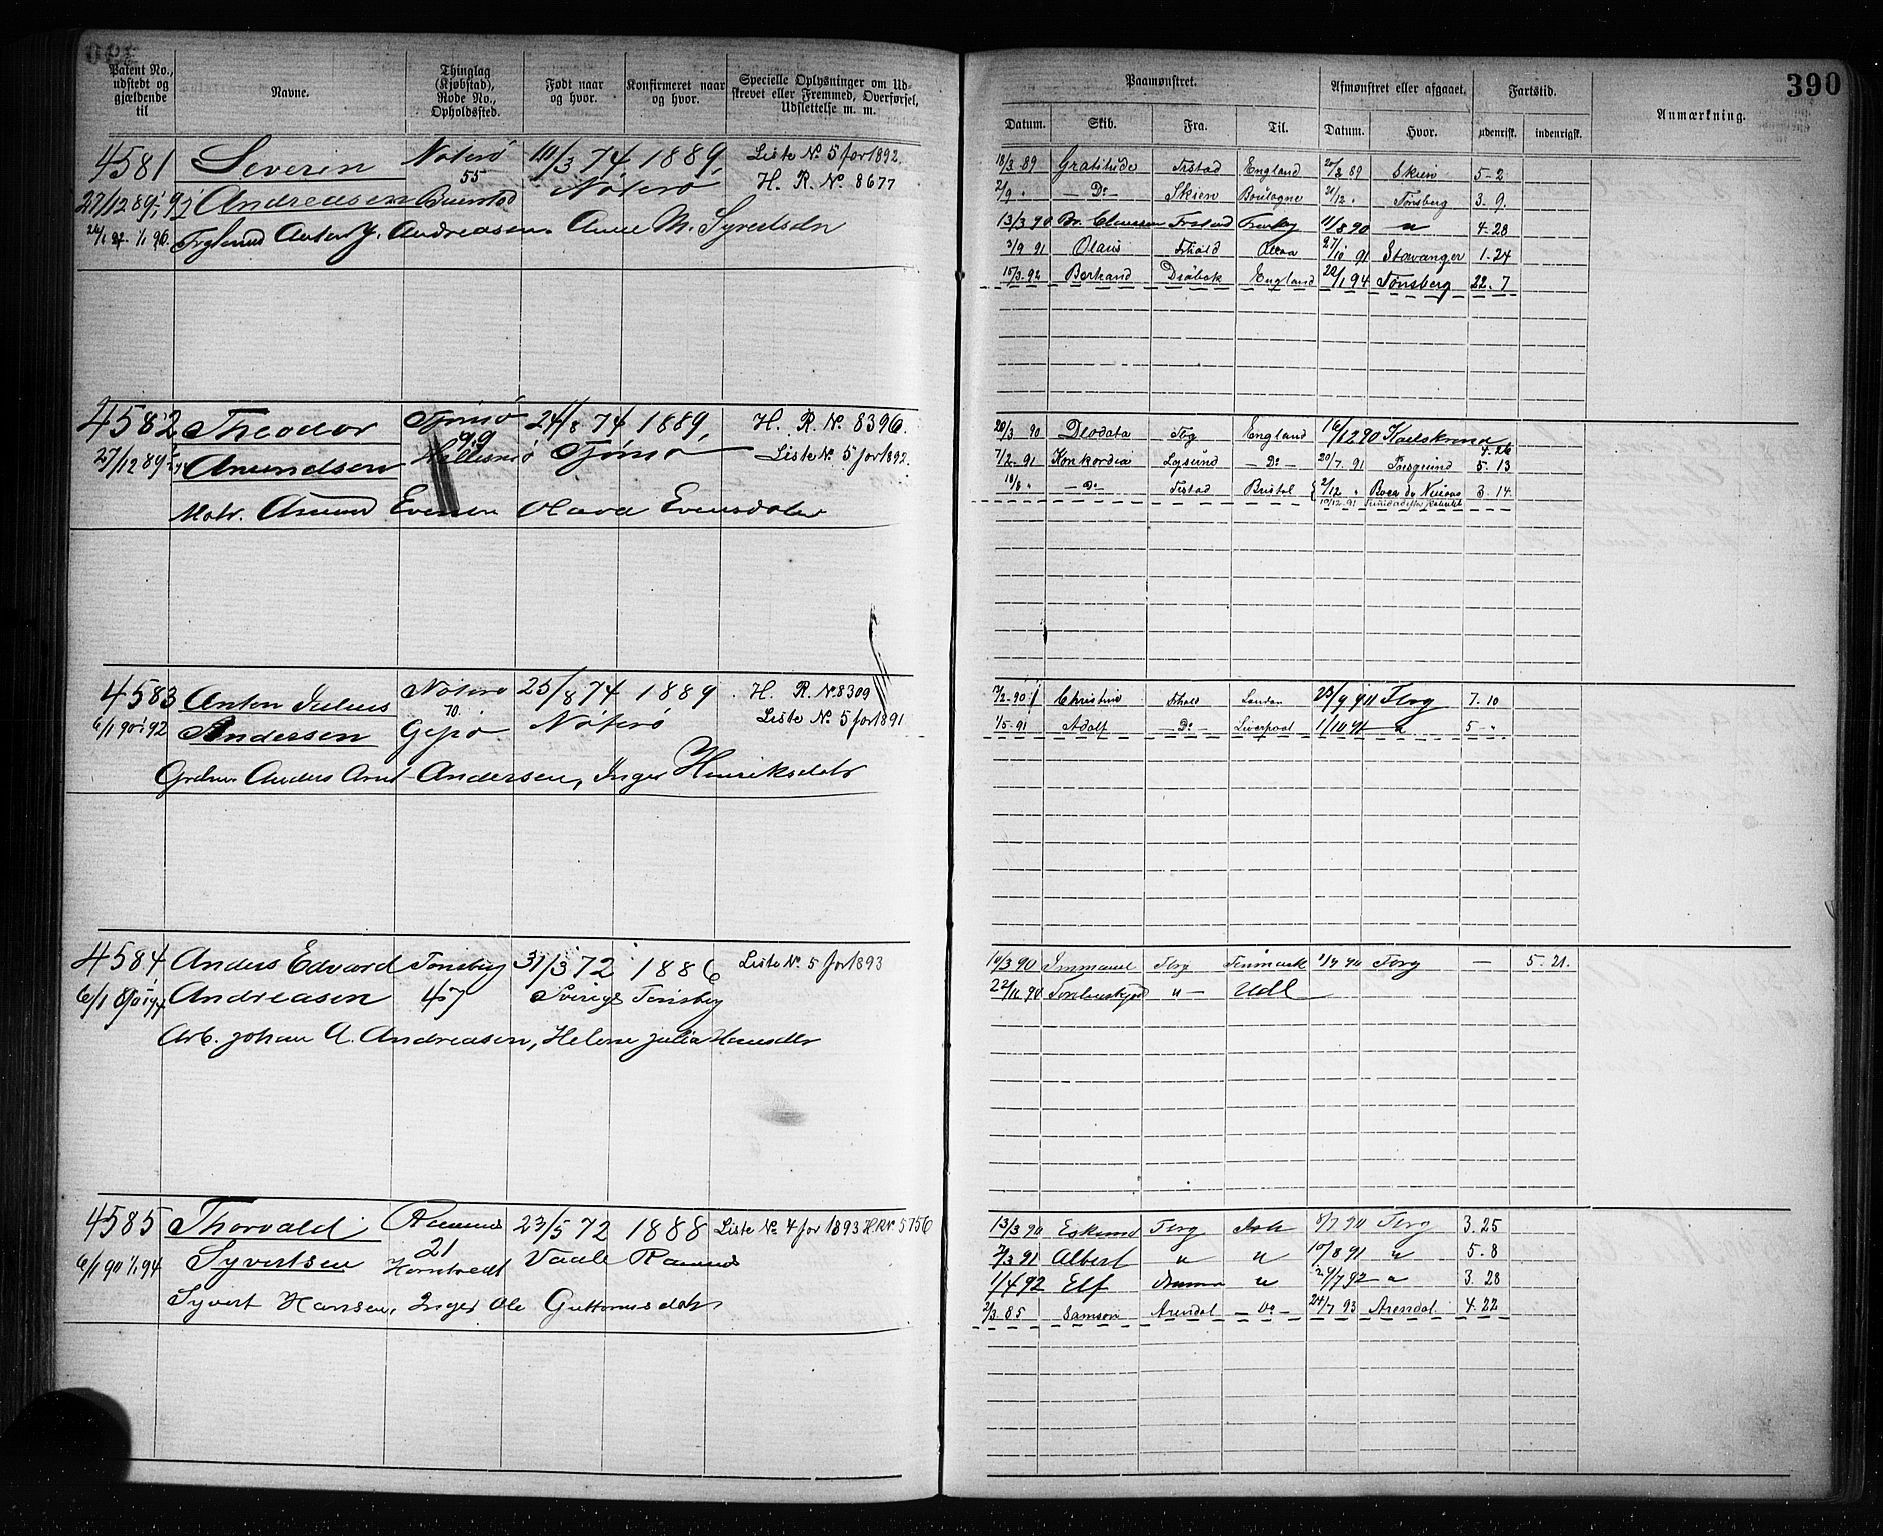 390
Patent No., udstedt og gjældende til
Navne.
Thinglag (Kjøbstad), Rode No., Opholdssted.
Født naar og hvor.
Konfirmeret naar og hvor.
Specielle Oplysninger om Udskrevet eller Fremmed, Overførsel, Udslettelse m. m.
Paamønstret.
Afmønstret eller afgaaet.
Fartstid.
Anmærkning.
Datum.
Skib.
Fra.
Til.
Datum.
Hvor.
udenrigsk.
indenrigsk.
4581 Severin Nøterø 10/3 74 1889, Liste No. 5 for 1892.
55 H. R. No. 8677
27/12 89 Andreasen Nøterø
Anton J. Andreasen. Anne M.
18/3 89 Gratitude Frstad England 20/8 89 Skien 5-2
2/9 " — Do Skien Boulogne 21/12 " Tønsberg 3. 9.
13/3 90 Br. Clausen Frstad 11/8 90 " 4-28
3/9 91 Olaus Fhald 27/10 91 Stavanger 1-24
15/3-92 Bertrand Drøbak England 22/1 94 Tønsberg 22. 7
4582 Theodor Tjømø 24/8 74 1889, H. R. No. 8396.
99
27/12 89 Amundsen Tjømø Liste No. 5 for 1892.
Matr. Amund Evensen Olava Evensdatter
20/3 90 Deodata Tbg England 16/12 90 4-26
7/2-91 Konkordia — Do — 20/7. 91 Porsgrund 5. 13
18/8 " — Do — Frstad Bristol 2/12 " 3. 14.
10/12. 91
4583 Anton Julius Nøterø 25/8 74 1889. H. R. No. 8309
70. Liste No. 5 for 1891
6/1 90 1/1 92 Andersen Nøterø
Anders Andersen, Inger Henriksdatr
7/2-90 Christine Fhald London 23/9 90 Tbrg 7. 10
1/5-91 Adolf — Do — Liverpool 1/10 91 " 5 - "
4584 Anders Edvard Tønsberg 31/3 72 1886 Liste No. 5 for 1893
6/1 90 Andreasen 47 Sverige Tønsberg
Arb. Johan A. Andreasen, Helene Julia Hansdtr
10/3 90 Immanuel Tbrg Finmark 90 Tbrg — 5. 21.
22/11 90 " — Udl
4585 Thorvald Ramnes 23/5 72 1888 Liste No. 4 for 1893 H.R.No 5756
21
6/1 90 1/1 94 Syvertsen Vaale Ramnes
Syvert Hansen, Inger Ole Guttormsdatr
13/3 90 Tbrg 90 Tbrg 3. 25
7/3 91 Albert " " 10/8 91 " 5. 8
1/4 92 Elf " 29/7 92 " 3. 28
2/3 85 Samson Arendal — Do — 24/7 93 Arendal 4. 22